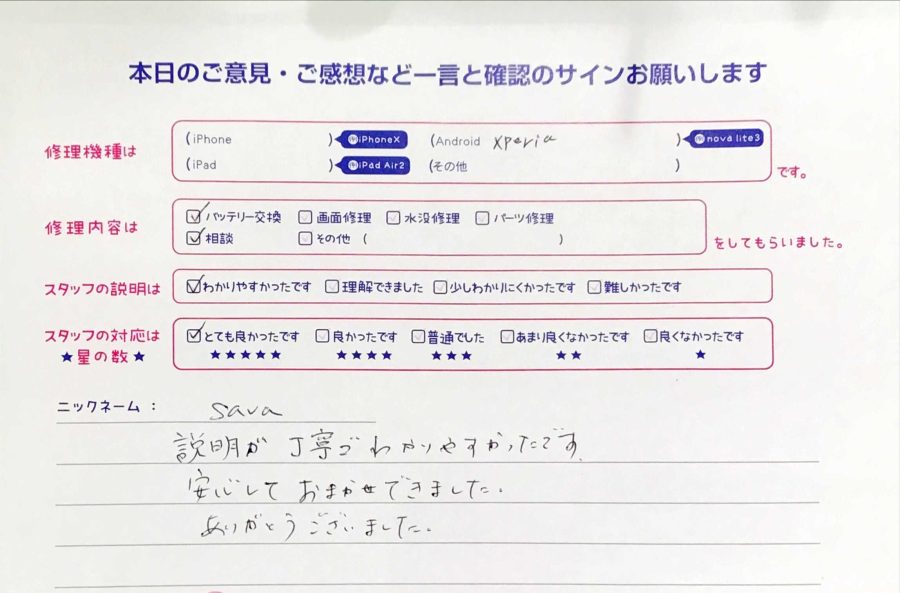 本日のご意見・ご感想など一言と確認のサインお願いします
修理機種は (iPhone ) iPhoneX (Android xperia ) nova lite3
(iPad ) iPad Air2 (その他 ) です。
修理内容は ☑バッテリー交換 ☐画面修理 ☐水没修理 ☐パーツ修理
☑相談 ☐その他 ( ) をしてもらいました。
スタッフの説明は ☑わかりやすかったです ☐理解できました ☐少しわかりにくかったです ☐難しかったです
スタッフの対応は ☑とても良かったです ☐良かったです ☐普通でした ☐あまり良くなかったです ☐良くなかったです
★星の数★ ★★★★★ ★★★★ ★★★ ★★ ★
ニックネーム: sava
説明が丁寧でわかりやすかったです
安心しておまかせできました。
ありがとうございました。